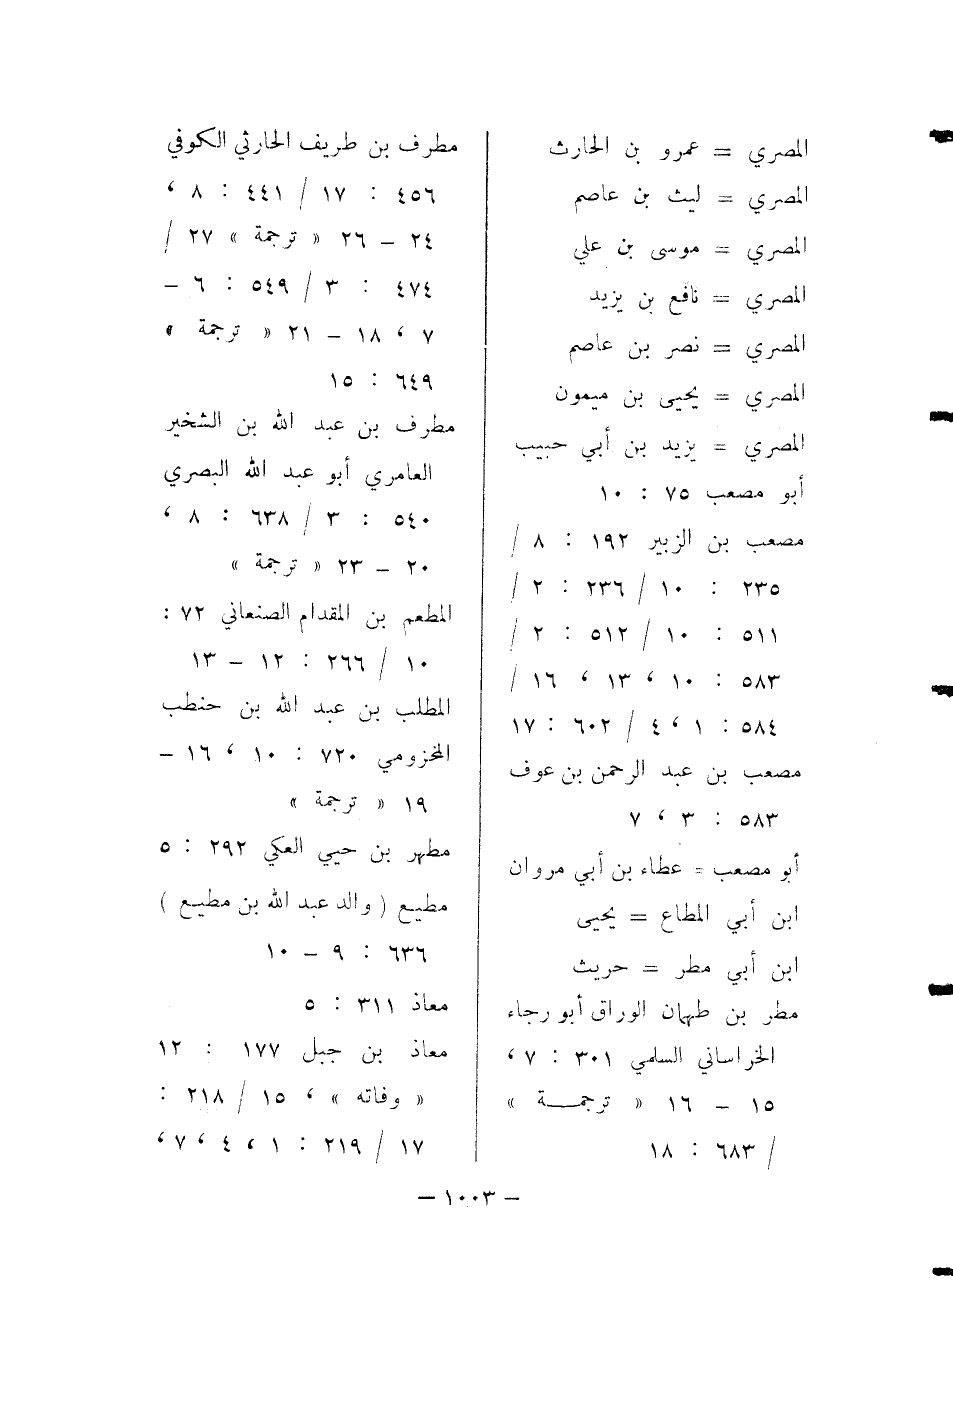 المصري = عمرو بن الحارث
المصري = ليث بن عاصم
المصري = موسى بن علي
المصري = نافع بن يزيد
المصري = نصر بن عاصم
المصري = يحيى بن ميمون
المصري = يزيد بن أبي حبيب
أبو مصعب ٧٥ : ١٠
مصعب بن الزبير ١٩٢ : ٨ /
٢٣٥ : ١٠ / ٢٣٦ : ٢ /
٥١١ : ١٠ / ٥١٢ : ٢ /
٥٨٣ : ١٠ ، ١٣ ، ١٦ /
٥٨٤ : ١ ، ٤ / ٦٠٢ : ١٧
مصعب بن عبد الرحمن بن عوف
٥٨٣ : ٣ ، ٧
أبو مصعب = عطاء بن أبي مروان
ابن أبي المطاع = يحيى
ابن أبي مطر = حريث
مطر بن طهمان الوراق أبو رجاء
الخراساني السلمي ٣٠١ : ٧ ،
١٥ – ١٦ « ترجمـــة »
/ ٦٨٣ : ١٨
مطرف بن طريف الحارثي الكوفي
٤٥٦ : ١٧ / ٤٤١ : ٨ ،
٢٤ – ٢٦ « ترجمة » ٢٧ /
٤٧٤ : ٣ / ٥٤٩ : ٦ –
٧ ، ١٨ – ٢١ « ترجمة »
٦٤٩ : ١٥
مطرف بن عبد الله بن الشخير
العامري أبو عبد الله البصري
٥٤٠ : ٣ / ٦٣٨ : ٨ ،
٢٠ – ٢٣ « ترجمة »
المطعم بن المقدام الصنعاني ٧٢ :
١٠ / ٢٦٦ : ١٢ – ١٣
المطلب بن عبد الله بن حنطب
المخزومي ٧٢٠ : ١٠ ، ١٦ –
١٩ « ترجمة »
مطهر بن حيي العكي ٢٩٢ : ٥
مطيع ( والد عبد الله بن مطيع )
٦٣٦ : ٩ – ١٠
معاذ ٣١١ : ٥
معاذ بن جبل ١٧٧ : ١٢
« وفاته » ، ١٥ / ٢١٨ :
١٧ / ٢١٩ : ١ ، ٤ ، ٧ ،
– ١٠٠٣ –